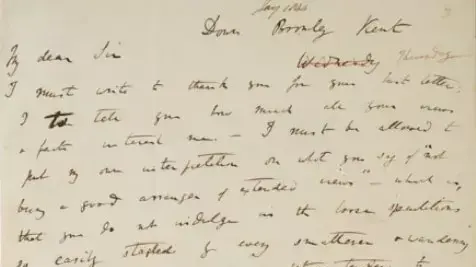 Jany 1844
Down Bromley Kent
My dear Sir Wednesday Thursday
I must write to thank you for your last letter;
I to tell you how much all your views
& facts interest me. — I must be allowed to
put my own interpretation on what you say of "not
being a good arranger of extended views" — which is,
that you do not indulge in the loose speculations
so easily started by every smatterer & wandering